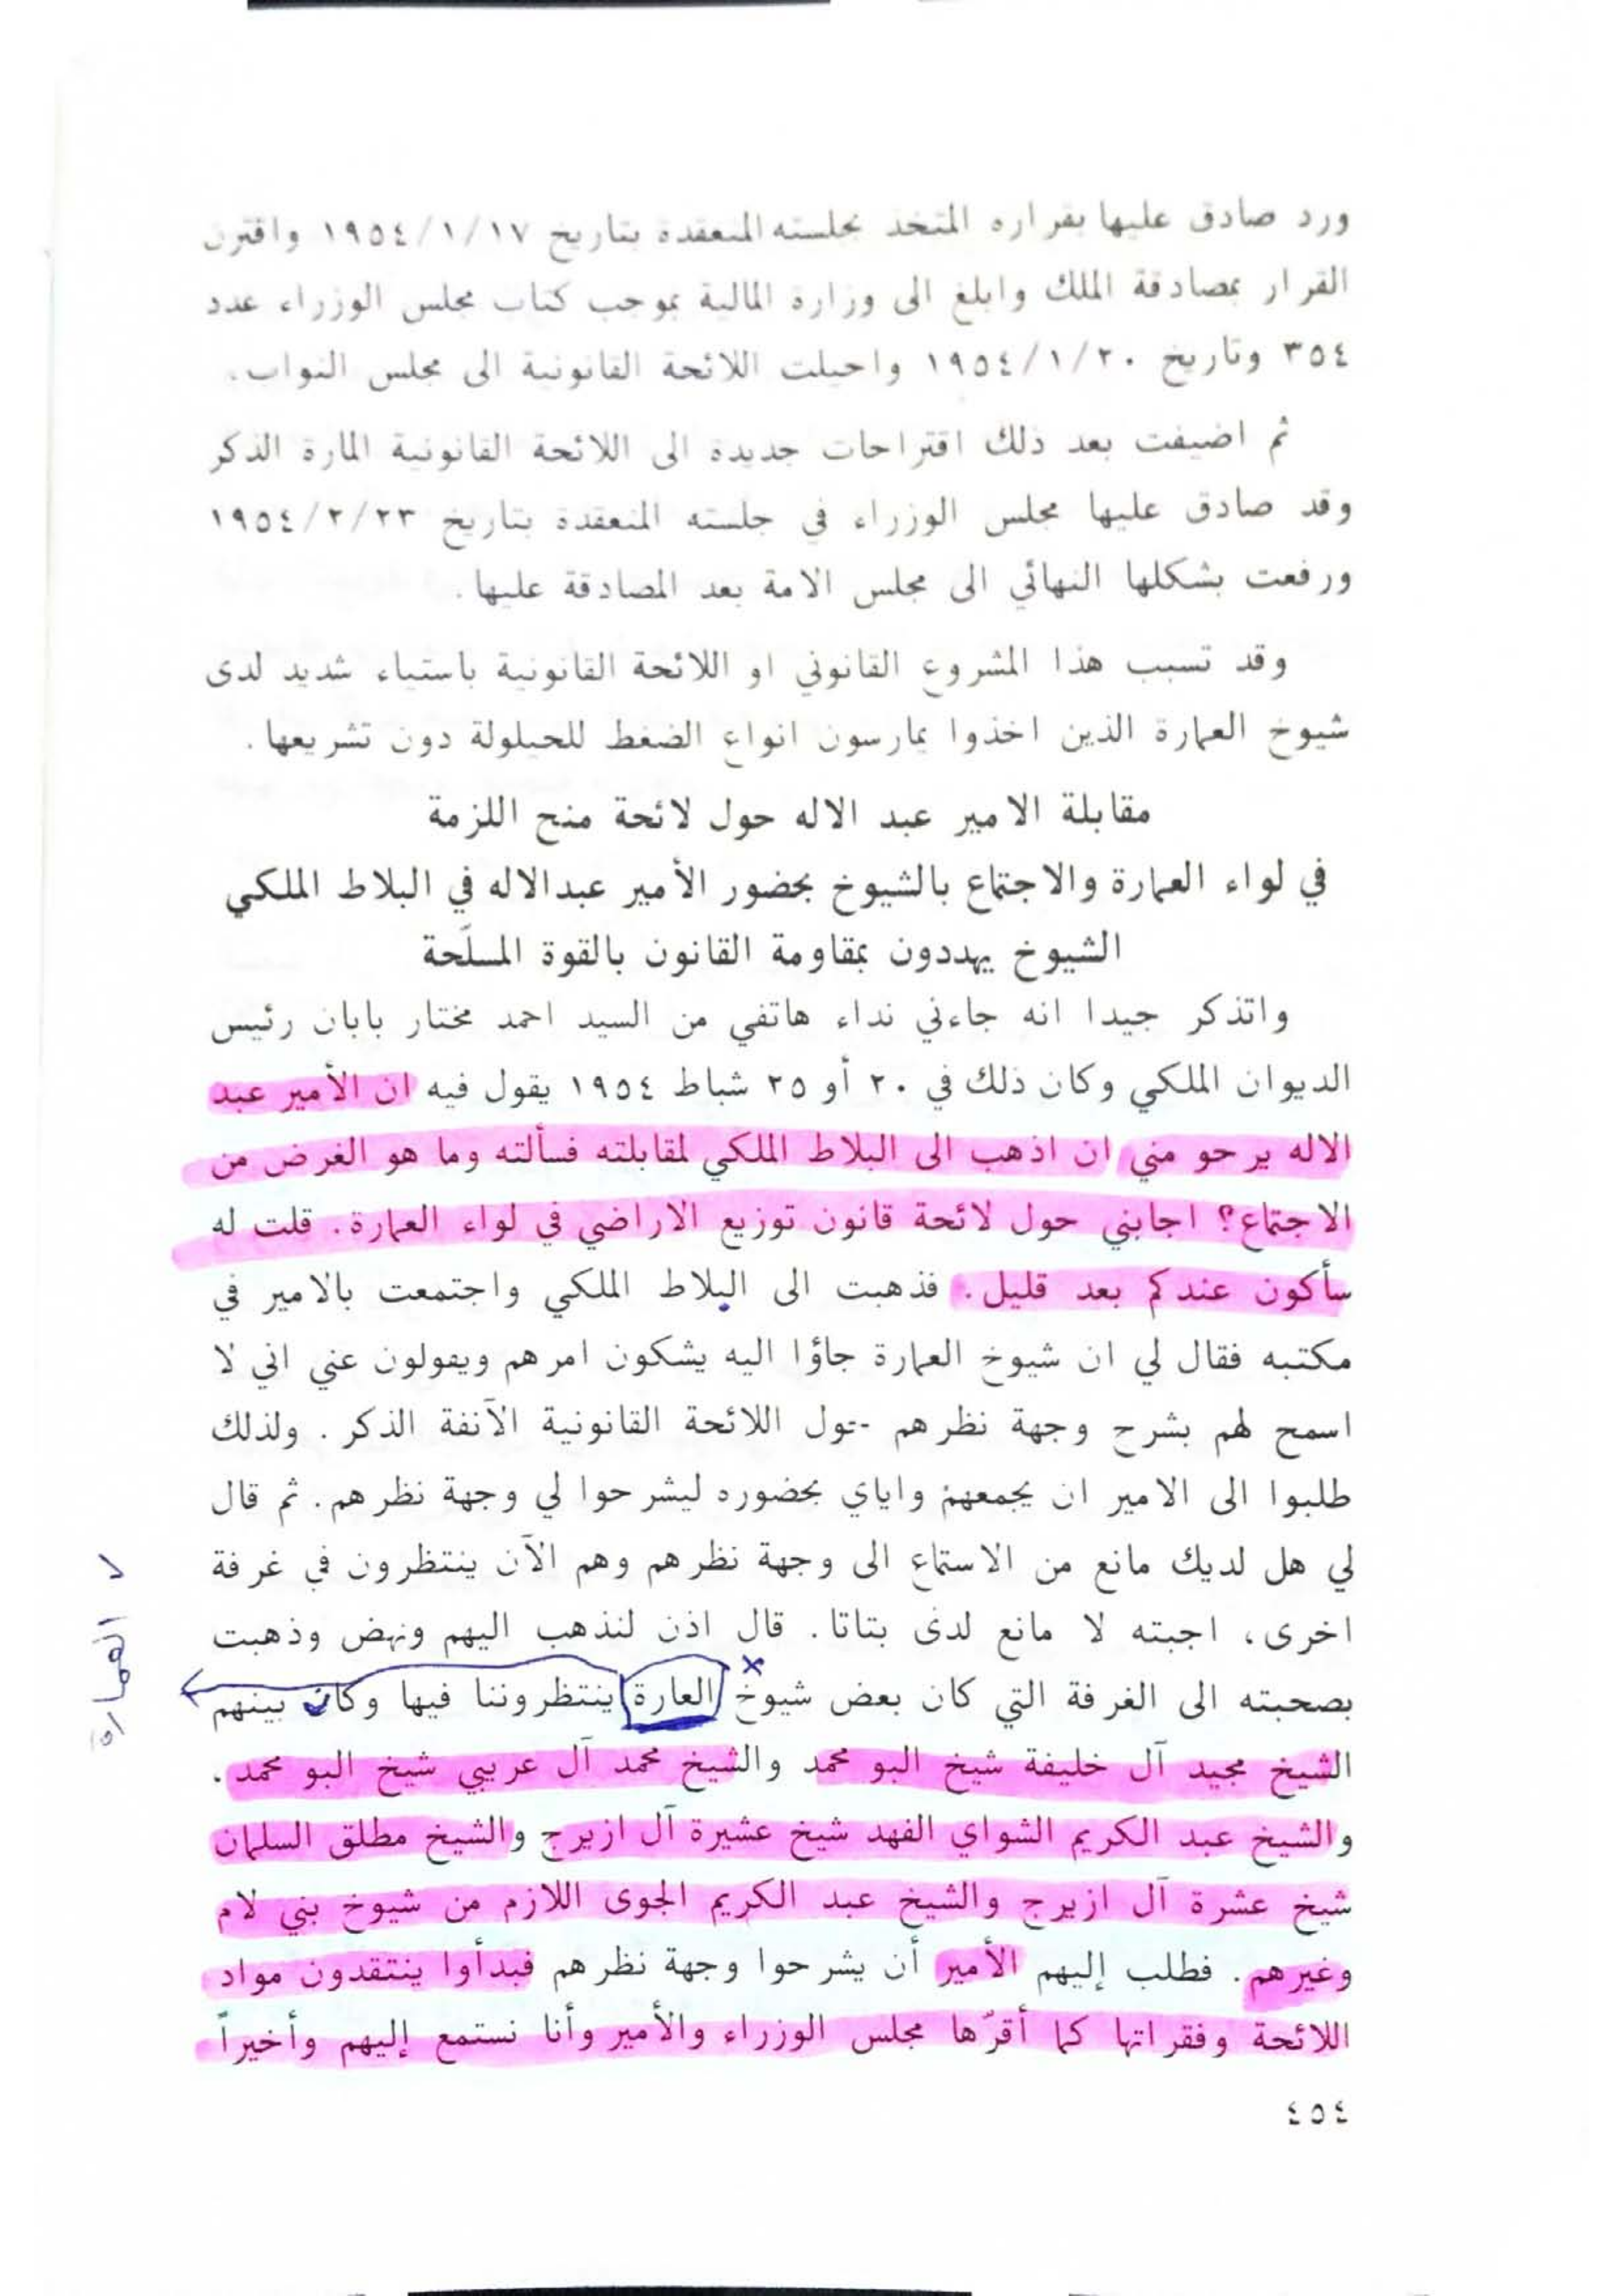 ورد صادق عليها بقراره المتخذ بجلسته المنعقدة بتاريخ ١٩٥٤/١/١٧ واقترن
القرار بمصادقة الملك وابلغ الى وزارة المالية بموجب كتاب مجلس الوزراء عدد
٣٥٤ وتاريخ ١٩٥٤/١/٢٠ واحيلت اللائحة القانونية الى مجلس النواب .
ثم اضيفت بعد ذلك اقتراحات جديدة الى اللائحة القانونية المارة الذكر
وقد صادق عليها مجلس الوزراء في جلسته المنعقدة بتاريخ ١٩٥٤/٢/٢٣
ورفعت بشكلها النهائي الى مجلس الامة بعد المصادقة عليها .
وقد تسبب هذا المشروع القانوني او اللائحة القانونية باستياء شديد لدى
شيوخ العمارة الذين اخذوا يمارسون انواع الضغط للحيلولة دون تشريعها .
مقابلة الامير عبد الاله حول لائحة منح اللزمة
في لواء العمارة والاجتماع بالشيوخ بحضور الأمير عبدالاله في البلاط الملكي
الشيوخ يهددون بمقاومة القانون بالقوة المسلّحة
واتذكر جيدا انه جاءني نداء هاتفي من السيد احمد مختار بابان رئيس
الديوان الملكي وكان ذلك في ٢٠ أو ٢٥ شباط ١٩٥٤ يقول فيه ان الأمير عبد
الاله يرحو مني ان اذهب الى البلاط الملكي لمقابلته فسألته وما هو الغرض من
الاجتماع؟ اجابني حول لائحة قانون توزيع الاراضي في لواء العمارة . قلت له
سأكون عندكم بعد قليل . فذهبت الى البلاط الملكي واجتمعت بالامير في
مكتبه فقال لي ان شيوخ العمارة جاؤا اليه يشكون امرهم ويقولون عني اني لا
اسمح لهم بشرح وجهة نظرهم حول اللائحة القانونية الآنفة الذكر . ولذلك
طلبوا الى الامير ان يجمعهم واياي بحضوره ليشرحوا لي وجهة نظرهم . ثم قال
لي هل لديك مانع من الاستماع الى وجهة نظرهم وهم الآن ينتظرون في غرفة
اخرى، اجبته لا مانع لدى بتاتا . قال اذن لنذهب اليهم ونهض وذهبت
بصحبته الى الغرفة التي كان بعض شيوخ العارة ينتظروننا فيها وكان بينهم
العمارة
الشيخ مجيد آل خليفة شيخ البو محمد والشيخ محمد آل عريبي شيخ البو محمد .
والشيخ عبد الكريم الشواي الفهد شيخ عشيرة آل ازيرج والشيخ مطلق السلمان
شيخ عشرة آل ازيرج والشيخ عبد الكريم الجوى اللازم من شيوخ بني لام
وغيرهم . فطلب إليهم الأمير أن يشرحوا وجهة نظرهم فبدأوا ينتقدون مواد
اللائحة وفقراتها كما أقرّها مجلس الوزراء والأمير وأنا نستمع إليهم وأخيراً
٤٥٤